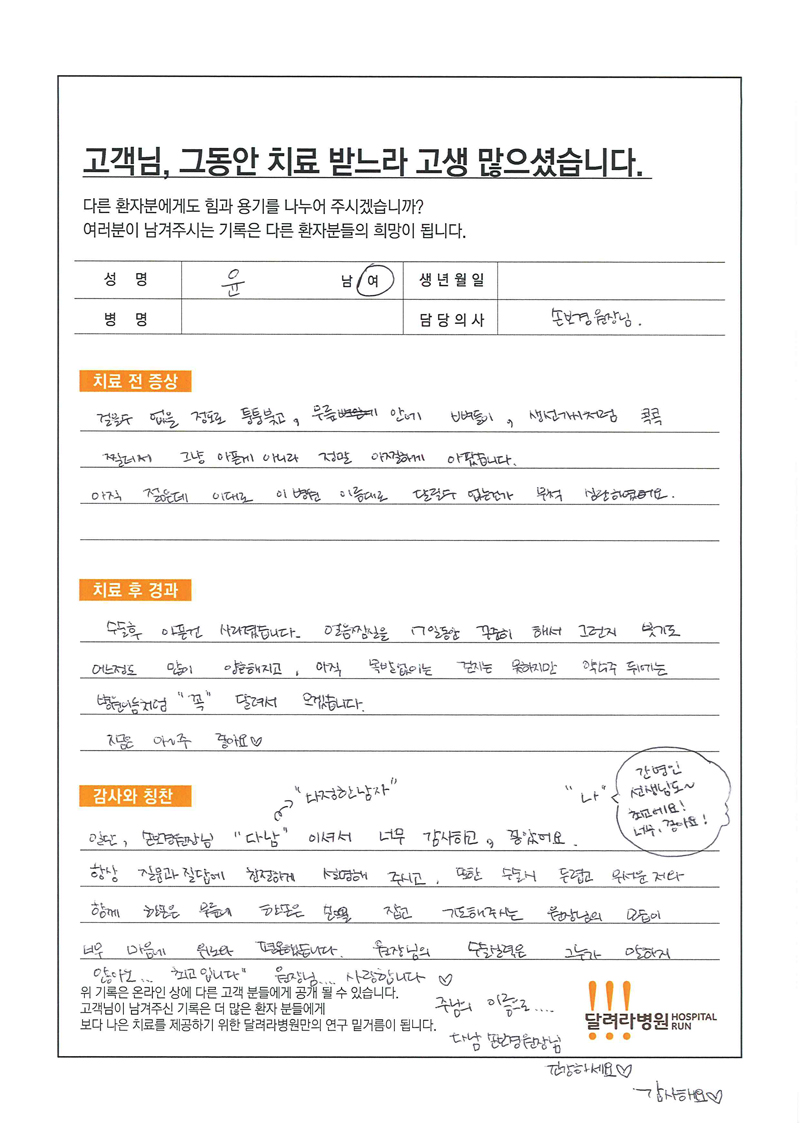 고객님, 그동안 치료 받느라 고생 많으셨습니다.
다른 환자분에게도 힘과 용기를 나누어 주시겠습니까?
여러분이 남겨주시는 기록은 다른 환자분들의 희망이 됩니다.
성 명 윤 남 여 생년월일
병 명 담당의사 손보경원장님.
치료 전 증상
걸을수 없을 정도로 퉁퉁붓고, 무릎 안에 뼈들이, 생선가시처럼 콕콕
찔려서 그냥 아픈게 아니라 정말 아찔하게 아팠습니다.
아직 젊은데 이대로 이병원 이름대로 달릴수 없는건가 무척 심난하였어요.
치료 후 경과
수술후 아픈건 사라졌습니다. 얼음찜질을 17일동안 꾸준히 해서 그런지 붓기도
어느정도 많이 양호해지고, 아직 목발없이는 걷지는 못하지만 약 주 뒤에는
병원이름처럼 "꼭" 달려서 오겠습니다.
지금은 아~주 좋아요♡
감사와 칭찬
"다정한남자"
"나"
간병인
선생님도~
최고에요!
너무, 좋아요!
일단, 손보경원장님 "다남" 이셔서 너무 감사하고, 좋았어요.
항상 질문과 질답에 친절하게 설명해 주시고, 또한 수술시 두렵고 무서운 저와
함께 한손은 무릎에 한손은 손을 잡고 기도해주시는 원장님의 모습이
너무 마음에 위로와 평온했습니다. 원장님의 수술실력은 그누가 말하지
않아도... 최고입니다" 원장님.... 사랑합니다 ♡
위 기록은 온라인 상에 다른 고객 분들에게 공개 될 수 있습니다.
고객님이 남겨주신 기록은 더 많은 환자 분들에게
보다 나은 치료를 제공하기 위한 달려라병원만의 연구 밑거름이 됩니다.
주님의 이름으로....
다남 손보경원장님
건강하세요♡
감사해요♡
달려라병원 HOSPITAL RUN